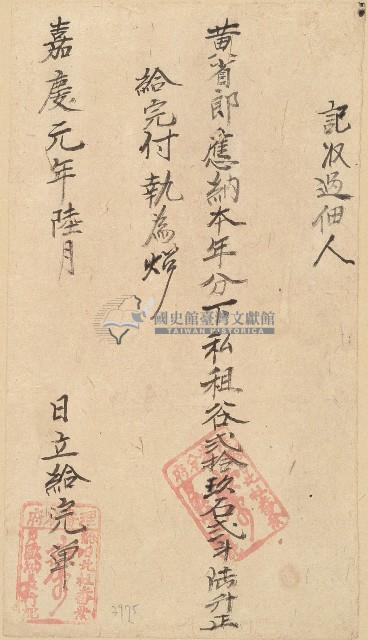 記收過佃人
黄省郎應納本年分丁私租谷弍拾玖石弍斗陸升正
給完付執為炤
嘉慶元年陸月
日立給完單
國史館臺灣文獻館
TAIWAN HISTORICA
2975